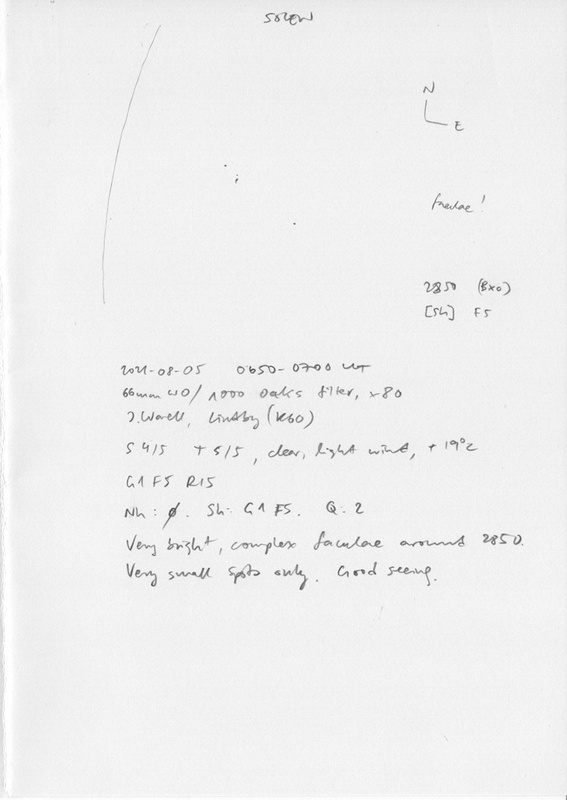 SOLEN
N
E
faculae!
2850 (Bxo)
[Sh] F5
2021-08-05 0650-0700 UT
66mm WO/1000 Oaks filter, x80
J. Warell, Lindby (K60)
S 4/5 T 5/5, clear, light wind, +19°C
G1 F5 R15
Nh: ø. Sh: G1 F5. Q: 2
Very bright, complex faculae around 2850.
Very small spots only. Good seeing.